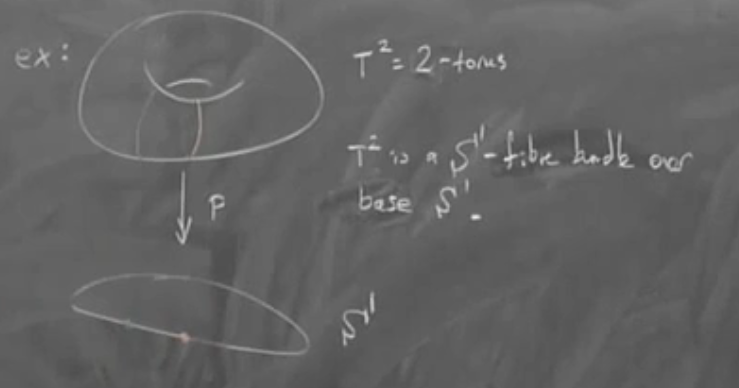 ex:
T² = 2-torus
T² is a S¹-fibre bundle over
base S¹.
P
S¹